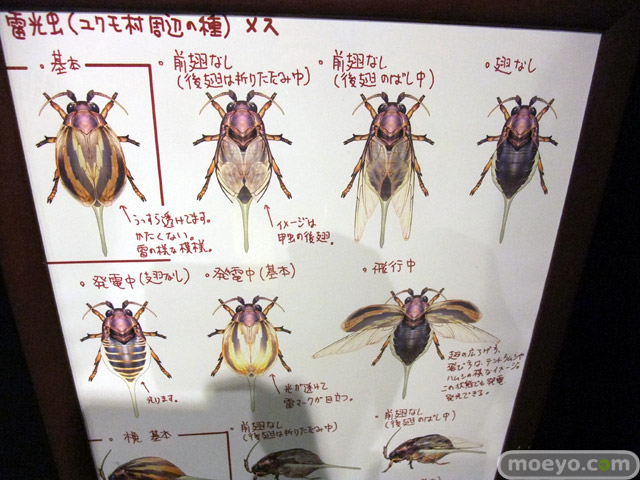 雷光虫(ユクモ村周辺の種) メス
・基本
・前翅なし
(後翅は折りたたみ中)
・前翅なし
(後翅のばし中)
・翅なし
うっすら透けてます。
かたくない。
雷の様な模様。
イメージは
甲虫の後翅。
・発電中(翅なし)
・発電中(基本)
・飛行中
光ります。
光が透けて
雷マークが目立つ。
翅の広げ方、
飛び方は、テントウムシや
ハムシの様なイメージ。
この状態でも発電
発光できる。
・横 基本
・前翅なし
(後翅は折りたたみ中)
・前翅なし
(後翅のばし中)
moeyo.com